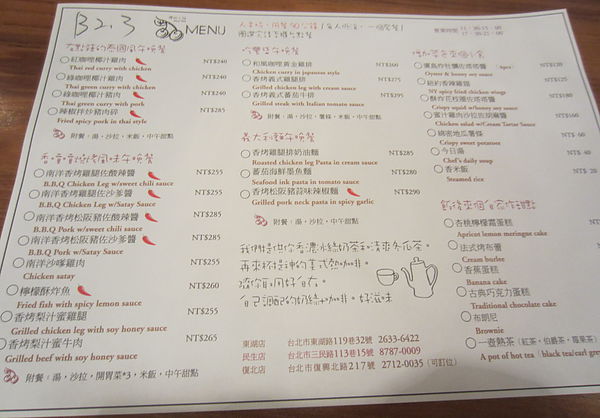 B2.3
MENU
紅咖哩椰汁雞肉 NT$240
Thai red curry with chicken
綠咖哩椰汁雞肉 NT$240
Thai green curry with chicken
綠咖哩椰汁豬肉 NT$240
Thai green curry with pork
辣椒拌炒豬肉碎 NT$285
Fried spicy pork in thai style
附餐：湯，沙拉，米飯，中午甜點
南洋香烤雞腿佐酸辣醬 NT$255
B.B.Q Chicken Leg w/sweet chili sauce
南洋香烤雞腿佐沙爹醬 NT$255
B.B.Q Chicken Leg w/Satay Sauce
南洋香烤松阪豬佐酸辣醬 NT$285
B.B.Q Pork w/sweet chili sauce
南洋香烤松阪豬佐沙爹醬 NT$285
B.B.Q Pork w/Satay Sauce
南洋沙嗲雞肉 NT$255
Chicken satay
檸檬酥炸魚 NT$260
Fried fish with spicy lemon sauce
香烤梨汁蜜雞腿 NT$255
Grilled chicken leg with soy honey sauce
香烤梨汁蜜牛肉 NT$265
Grilled beef with soy honey sauce
附餐：湯，沙拉，開胃菜*3，米飯，中午甜點
和風咖哩黃金雞排 NT$260
Chicken curry in japanese style
香烤義式雞腿排 NT$275
Grilled chicken leg with cream sauce
香烤義式蕃茄牛排 NT$295
Grilled steak with Italian tomato sauce
附餐：湯，沙拉，薯條，米飯，中午甜點
義大利麵午晚餐
香烤雞腿排奶油麵 NT$285
Roasted chicken leg Pasta in cream sauce
蕃茄海鮮墨魚麵 NT$280
Seafood ink pasta in tomato sauce
香烤松阪豬蒜味辣椒麵 NT$290
Grilled pork neck pasta in spicy garlic
附餐：湯，沙拉，中午甜點
我們提供你香濃冰綠奶茶和清爽冬瓜茶。
再來杯提神的美式熱咖啡。
東湖店 台北市東湖路119巷32號 2633-6422
民生店 台北市三民路113巷15號 8787-0009
復北店 台北市復興北路217號 2712-0035 (可訂位)
營業時間
Oyster & honey soy sauce
紐約香辣雞翅 NT$125
NY spicy fried chicken wings
酥炸花枝雞佐塔塔醬 NT$180
Crispy squid w/ cream tartar sauce
蜜汁雞肉沙拉佐胡麻醬 NT$
Chicken salad w/Cream Tartar Sauce
綿密地瓜薯條 NT$ 60
Crispy sweet potatoes
今日湯 NT$ 40
Chef's daily soup
香米飯 NT$ 20
Steamed rice
杏桃檸檬霜蛋糕
Apricot lemon meringue cake
法式烤布蕾
Cream burlee
香蕉蛋糕
Banana cake
古典巧克力蛋糕
Traditional chocolate cake
布朗尼
Brownie
一壺熱茶（紅茶，伯爵茶，
A pot of hot tea（black tea/earl grey